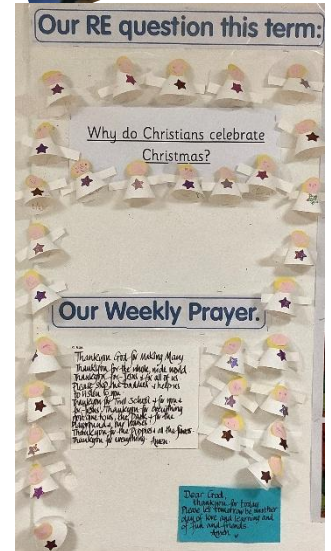 Our RE question this term:
Why do Christians celebrate
Christmas?
Our Weekly Prayer.
Thankyou God for Making Many
Thankyou for the whole, wide world
Thankyou for Jesus & for all of us
Please stop the baddies & help us
to listen to you
Thankyou for This School & for you &
for Jesus. Thankyou for everything
you give to us, the Park & for the
Playground & our houses
Thankyou for the Peoples & all the
Thankyou for everything. Amen
Dear God,
Thankyou for today
Please let tomorrow be another
day of love and learning and
of fun and friends
Amen